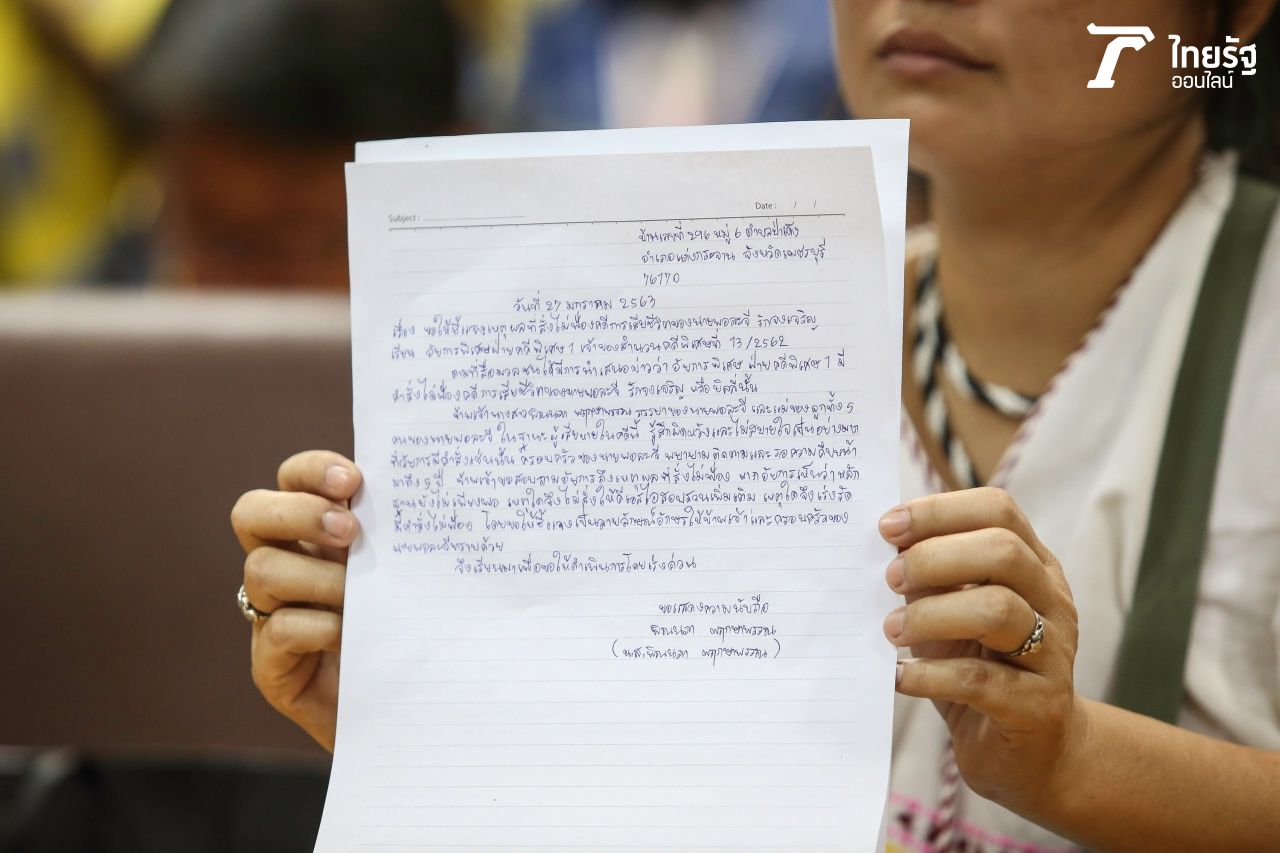 ไทยรัฐ
ออนไลน์
Subject :
Date : / /
บ้านเลขที่ 296 หมู่ 6 ตำบลป่าเด็ง
อำเภอแก่งกระจาน จังหวัดเพชรบุรี
76170
วันที่ 27 มกราคม 2563
เรื่อง ขอให้ชี้แจงเหตุผลที่สั่งไม่ฟ้องคดีการเสียชีวิตของนายพอละจี รักจงเจริญ
เรียน อัยการพิเศษฝ่ายคดีพิเศษ 1 เจ้าของสำนวนคดีพิเศษที่ 13/2562
ตามที่สื่อมวลชนได้มีการนำเสนอข่าวว่า อัยการพิเศษ ฝ่ายคดีพิเศษ 1 มี
คำสั่งไม่ฟ้องคดีการเสียชีวิตของนายพอละจี รักจงเจริญ หรือบิลลี่นั้น
ข้าพเจ้านางสาวพิณนภา พฤกษาพรรณ ภรรยาของนายพอละจี และแม่ของลูกทั้ง 5
คนของนายพอละจี ในฐานะผู้เสียหายในคดีนี้ รู้สึกผิดหวังและไม่สบายใจเป็นอย่างมาก
ที่อัยการมีคำสั่งเช่นนั้น ครอบครัวของนายพอละจี พยายามติดตามและรอความคืบหน้า
มาถึง 5 ปี ข้าพเจ้าขอสอบถามอัยการถึงเหตุผลที่สั่งไม่ฟ้อง หากอัยการเห็นว่าหลัก
ฐานยังไม่เพียงพอ เหตุใดจึงไม่สั่งให้ดีเอสไอสอบสวนเพิ่มเติม เหตุใดจึงเร่งรัด
มีคำสั่งไม่ฟ้อง โดยขอให้ชี้แจงเป็นลายลักษณ์อักษรให้ข้าพเจ้าและครอบครัวของ
นายพอละจีทราบด้วย
จึงเรียนมาเพื่อขอให้ดำเนินการโดยเร่งด่วน
ขอแสดงความนับถือ
พิณนภา พฤกษาพรรณ
(น.ส.พิณนภา พฤกษาพรรณ)